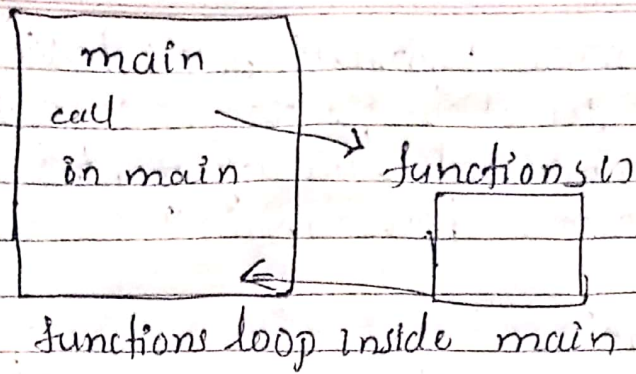 main
call
in main
functions()
functions loop inside main